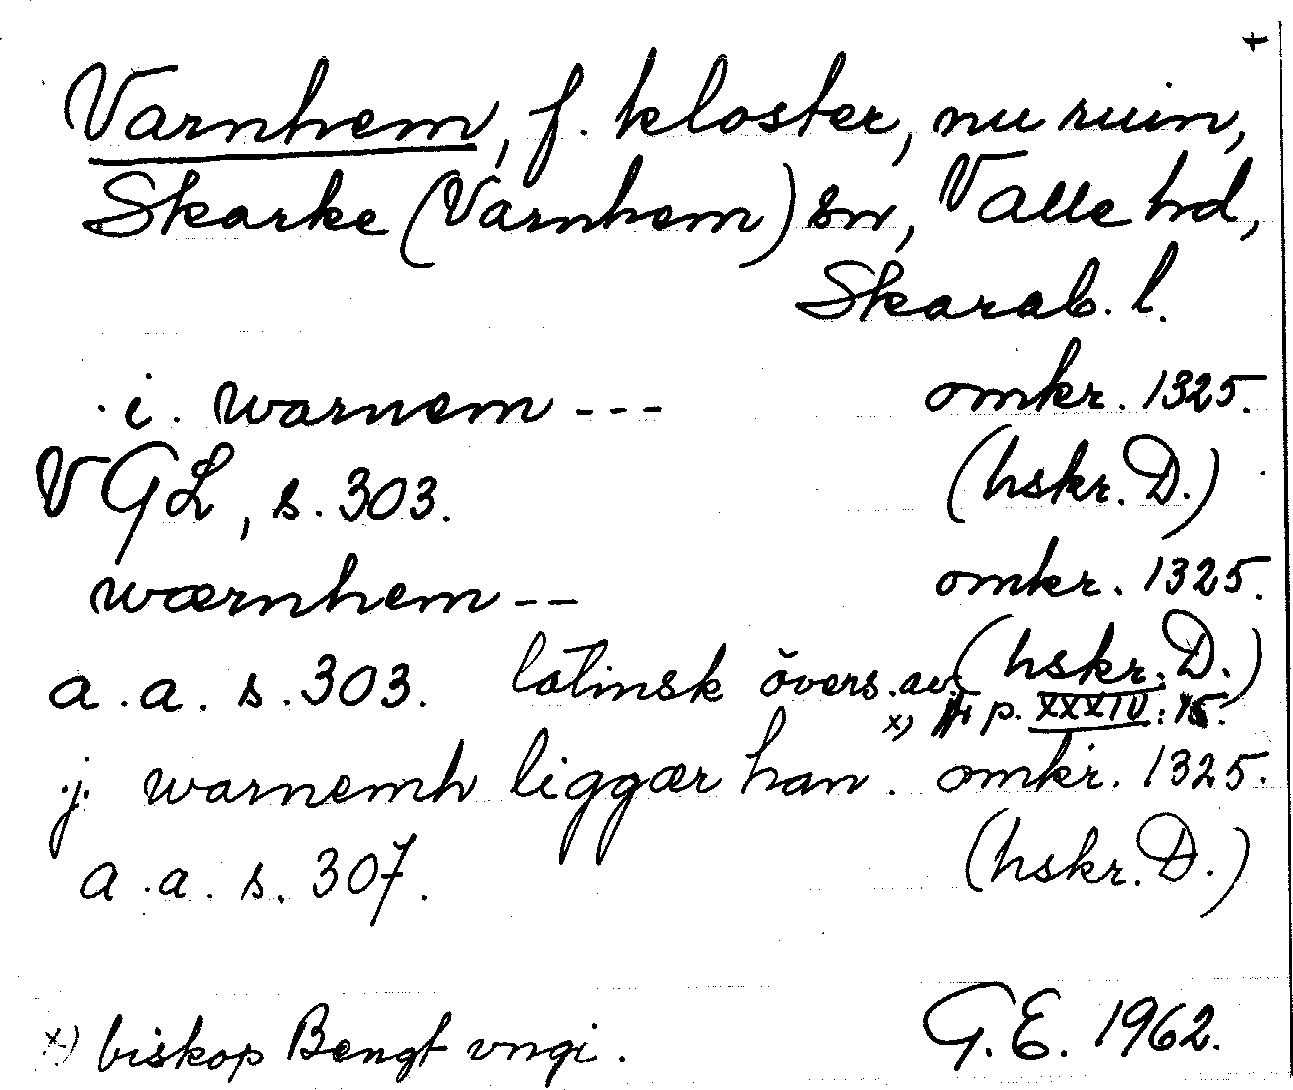 +
Varnhem, f. kloster, nu ruin,
Skarke (Varnhem) sn, Valle hd,
Skarab. l.
i. warnem --- omkr. 1325.
VGL, s. 303. (hskr. D.)
wærnhem -- omkr. 1325.
a.a. s. 303. latinsk övers. av (hskr. D.)
x) p. XXXIV: 15.
j. warnemh liggær han. omkr. 1325.
a.a. s. 307. (hskr. D.)
x) biskop Bengt vngi. G.E. 1962.